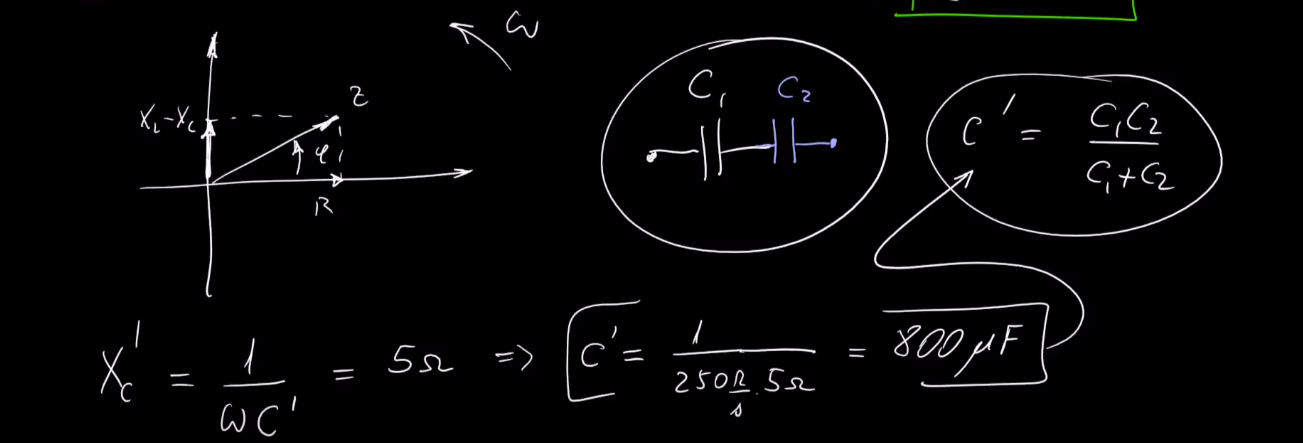 ω
Z
X_L-X_C
φ
R
C₁ C₂
C' = C₁C₂ / C₁+C₂
X_C' = 1 / ωC' = 5Ω => C' = 1 / 250 R/s . 5Ω = 800 μF